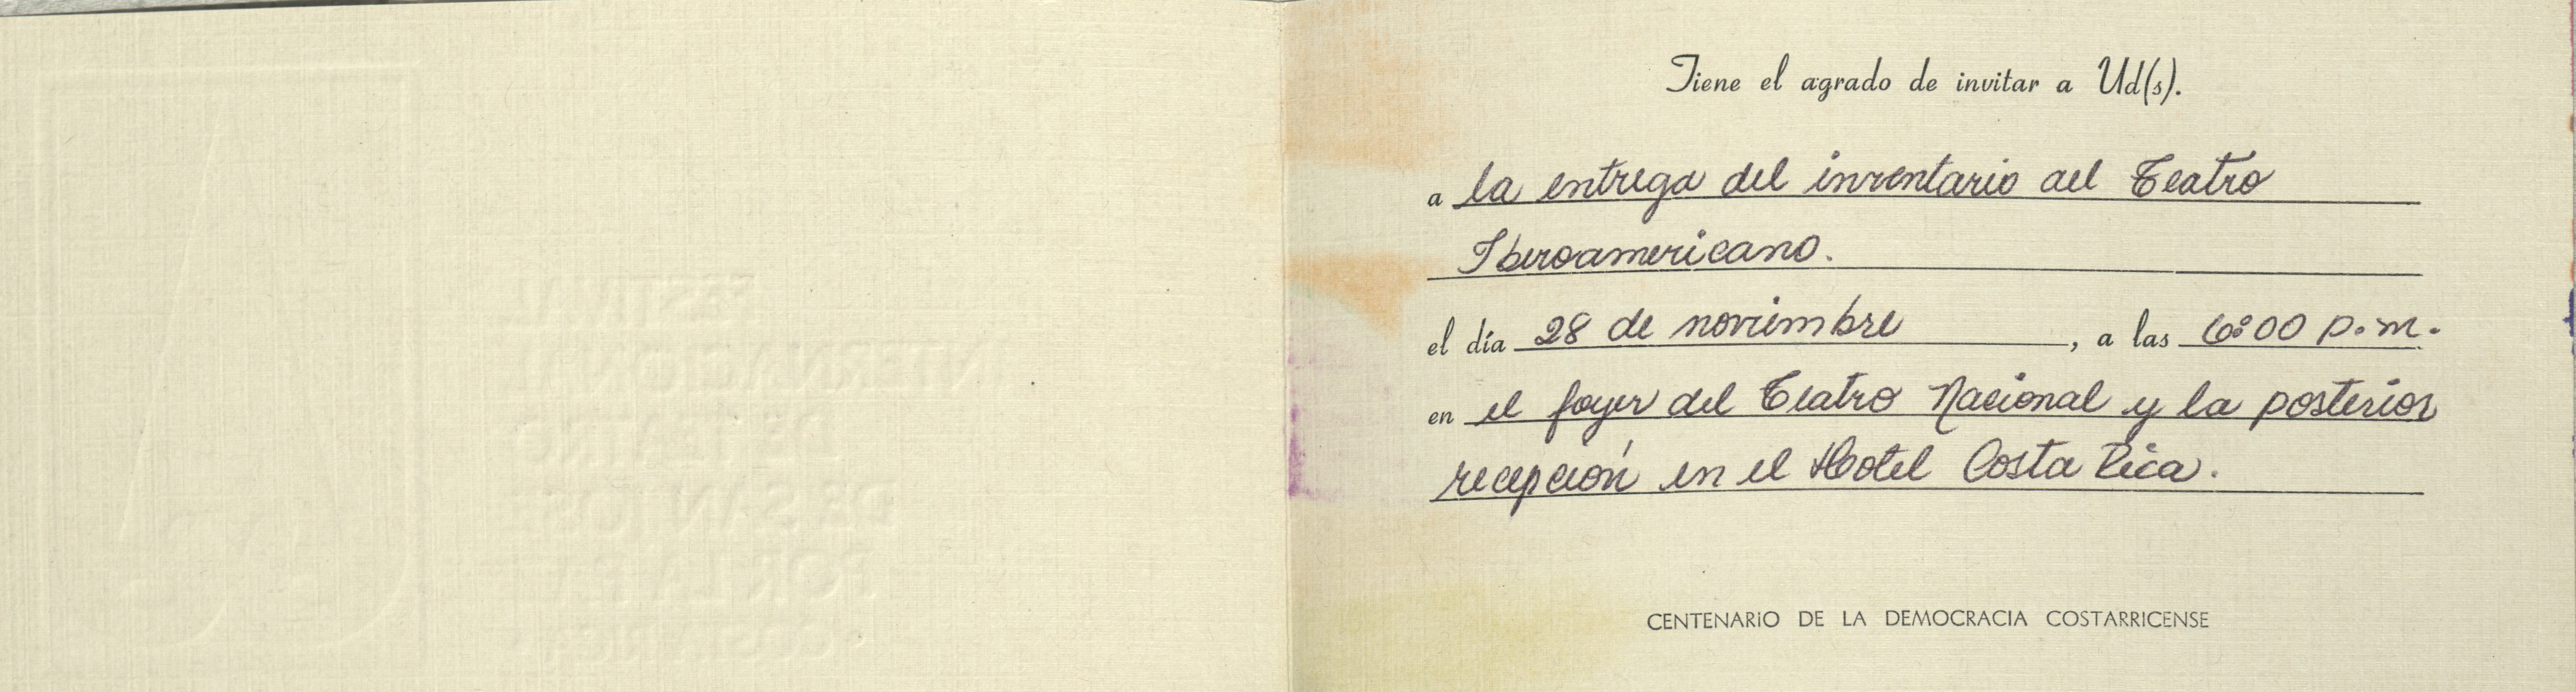 Tiene el agrado de invitar a Ud(s).
a la entrega del inventario del Teatro
Iberoamericano.
el día 28 de noviembre, a las 6:00 p.m.
en el foyer del Teatro Nacional y la posterior
recepción en el Hotel Costa Rica.
CENTENARIO DE LA DEMOCRACIA COSTARRICENSE
FESTIVAL
INTERNACIONAL
DE TEATRO
DE SAN JOSE
POR LA PAZ
COSTA RICA